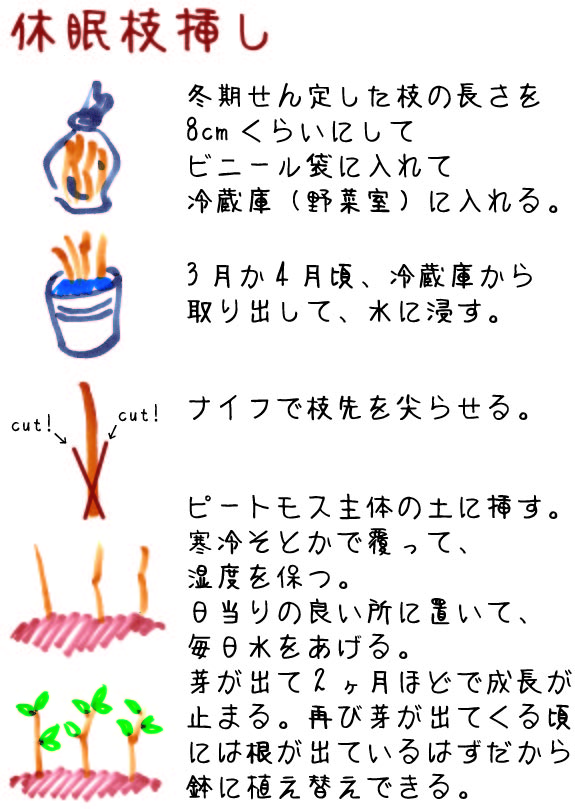 休眠枝挿し
冬期せん定した枝の長さを
8cmくらいにして
ビニール袋に入れて
冷蔵庫（野菜室）に入れる。
3月か4月頃、冷蔵庫から
取り出して、水に浸す。
ナイフで枝先を尖らせる。
cut!
cut!
ピートモス主体の土に挿す。
寒冷そとかで覆って、
湿度を保つ。
日当りの良い所に置いて、
毎日水をあげる。
芽が出て2ヶ月ほどで成長が
止まる。再び芽が出てくる頃
には根が出ているはずだから
鉢に植え替えできる。